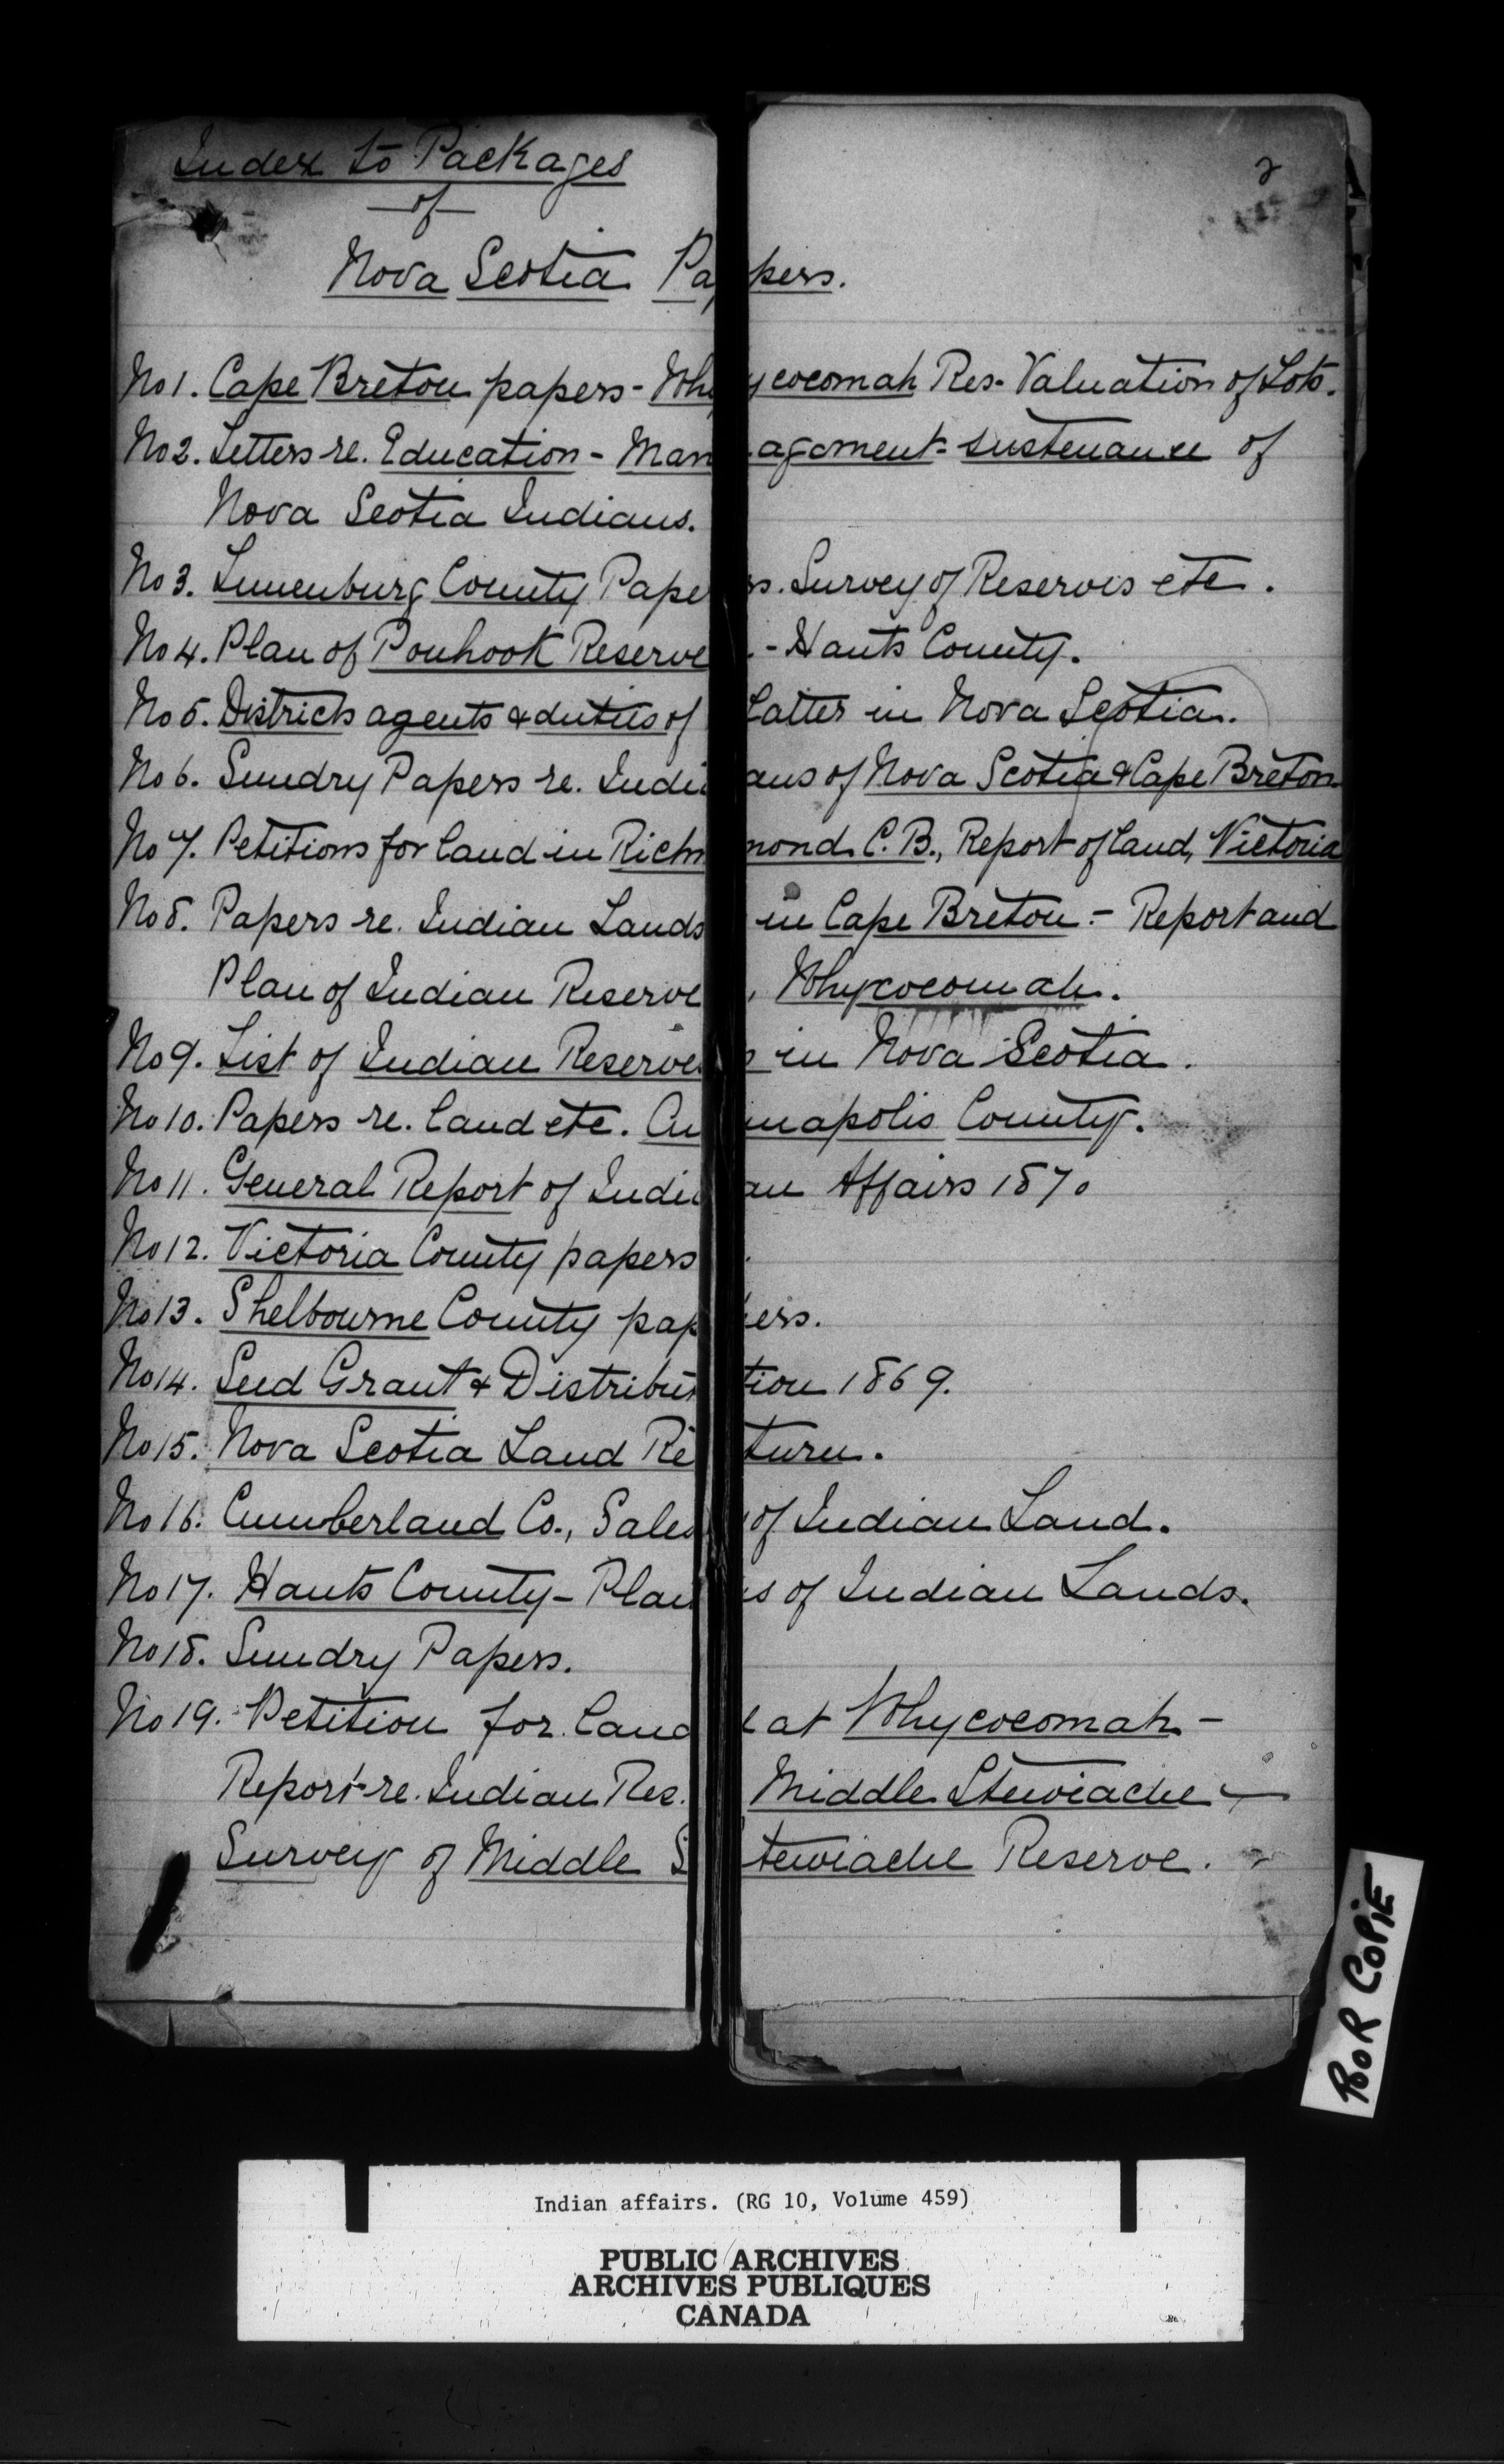 2
Index to Packages
of
Nova Scotia Papers.
No 1. Cape Breton papers - Whycocomah Res. Valuation of Lots.
No 2. Letters re. Education - Management - sustenance of
Nova Scotia Indians.
No 3. Lunenburg County Papers. Survey of Reserves etc.
No 4. Plan of Ponhook Reserve - Hants County.
No 5. Districts agents & duties of latter in Nova Scotia.
No 6. Sundry Papers re. Indians of Nova Scotia & Cape Breton
No 7. Petitions for land in Richmond C. B., Report of land, Victoria
No 8. Papers re. Indian Lands in Cape Breton - Report and
Plan of Indian Reserve, Whycocomah.
No 9. List of Indian Reserves in Nova Scotia.
No 10. Papers re. land etc. Annapolis County.
No 11. General Report of Indian Affairs 1870
No 12. Victoria County papers.
No 13. Shelbourne County papers.
No 14. Seed Grant & Distribution 1869.
No 15. Nova Scotia Land Return.
No 16. Cumberland Co., Sales of Indian Land.
No 17. Hants County - Plans of Indian Lands.
No 18. Sundry Papers.
No 19. Petition for land at Whycocomah -
Report re. Indian Res. Middle Stewiacke -
Survey of Middle Stewiacke Reserve.
POOR COPIE
Indian affairs. (RG 10, Volume 459)
PUBLIC ARCHIVES
ARCHIVES PUBLIQUES
CANADA